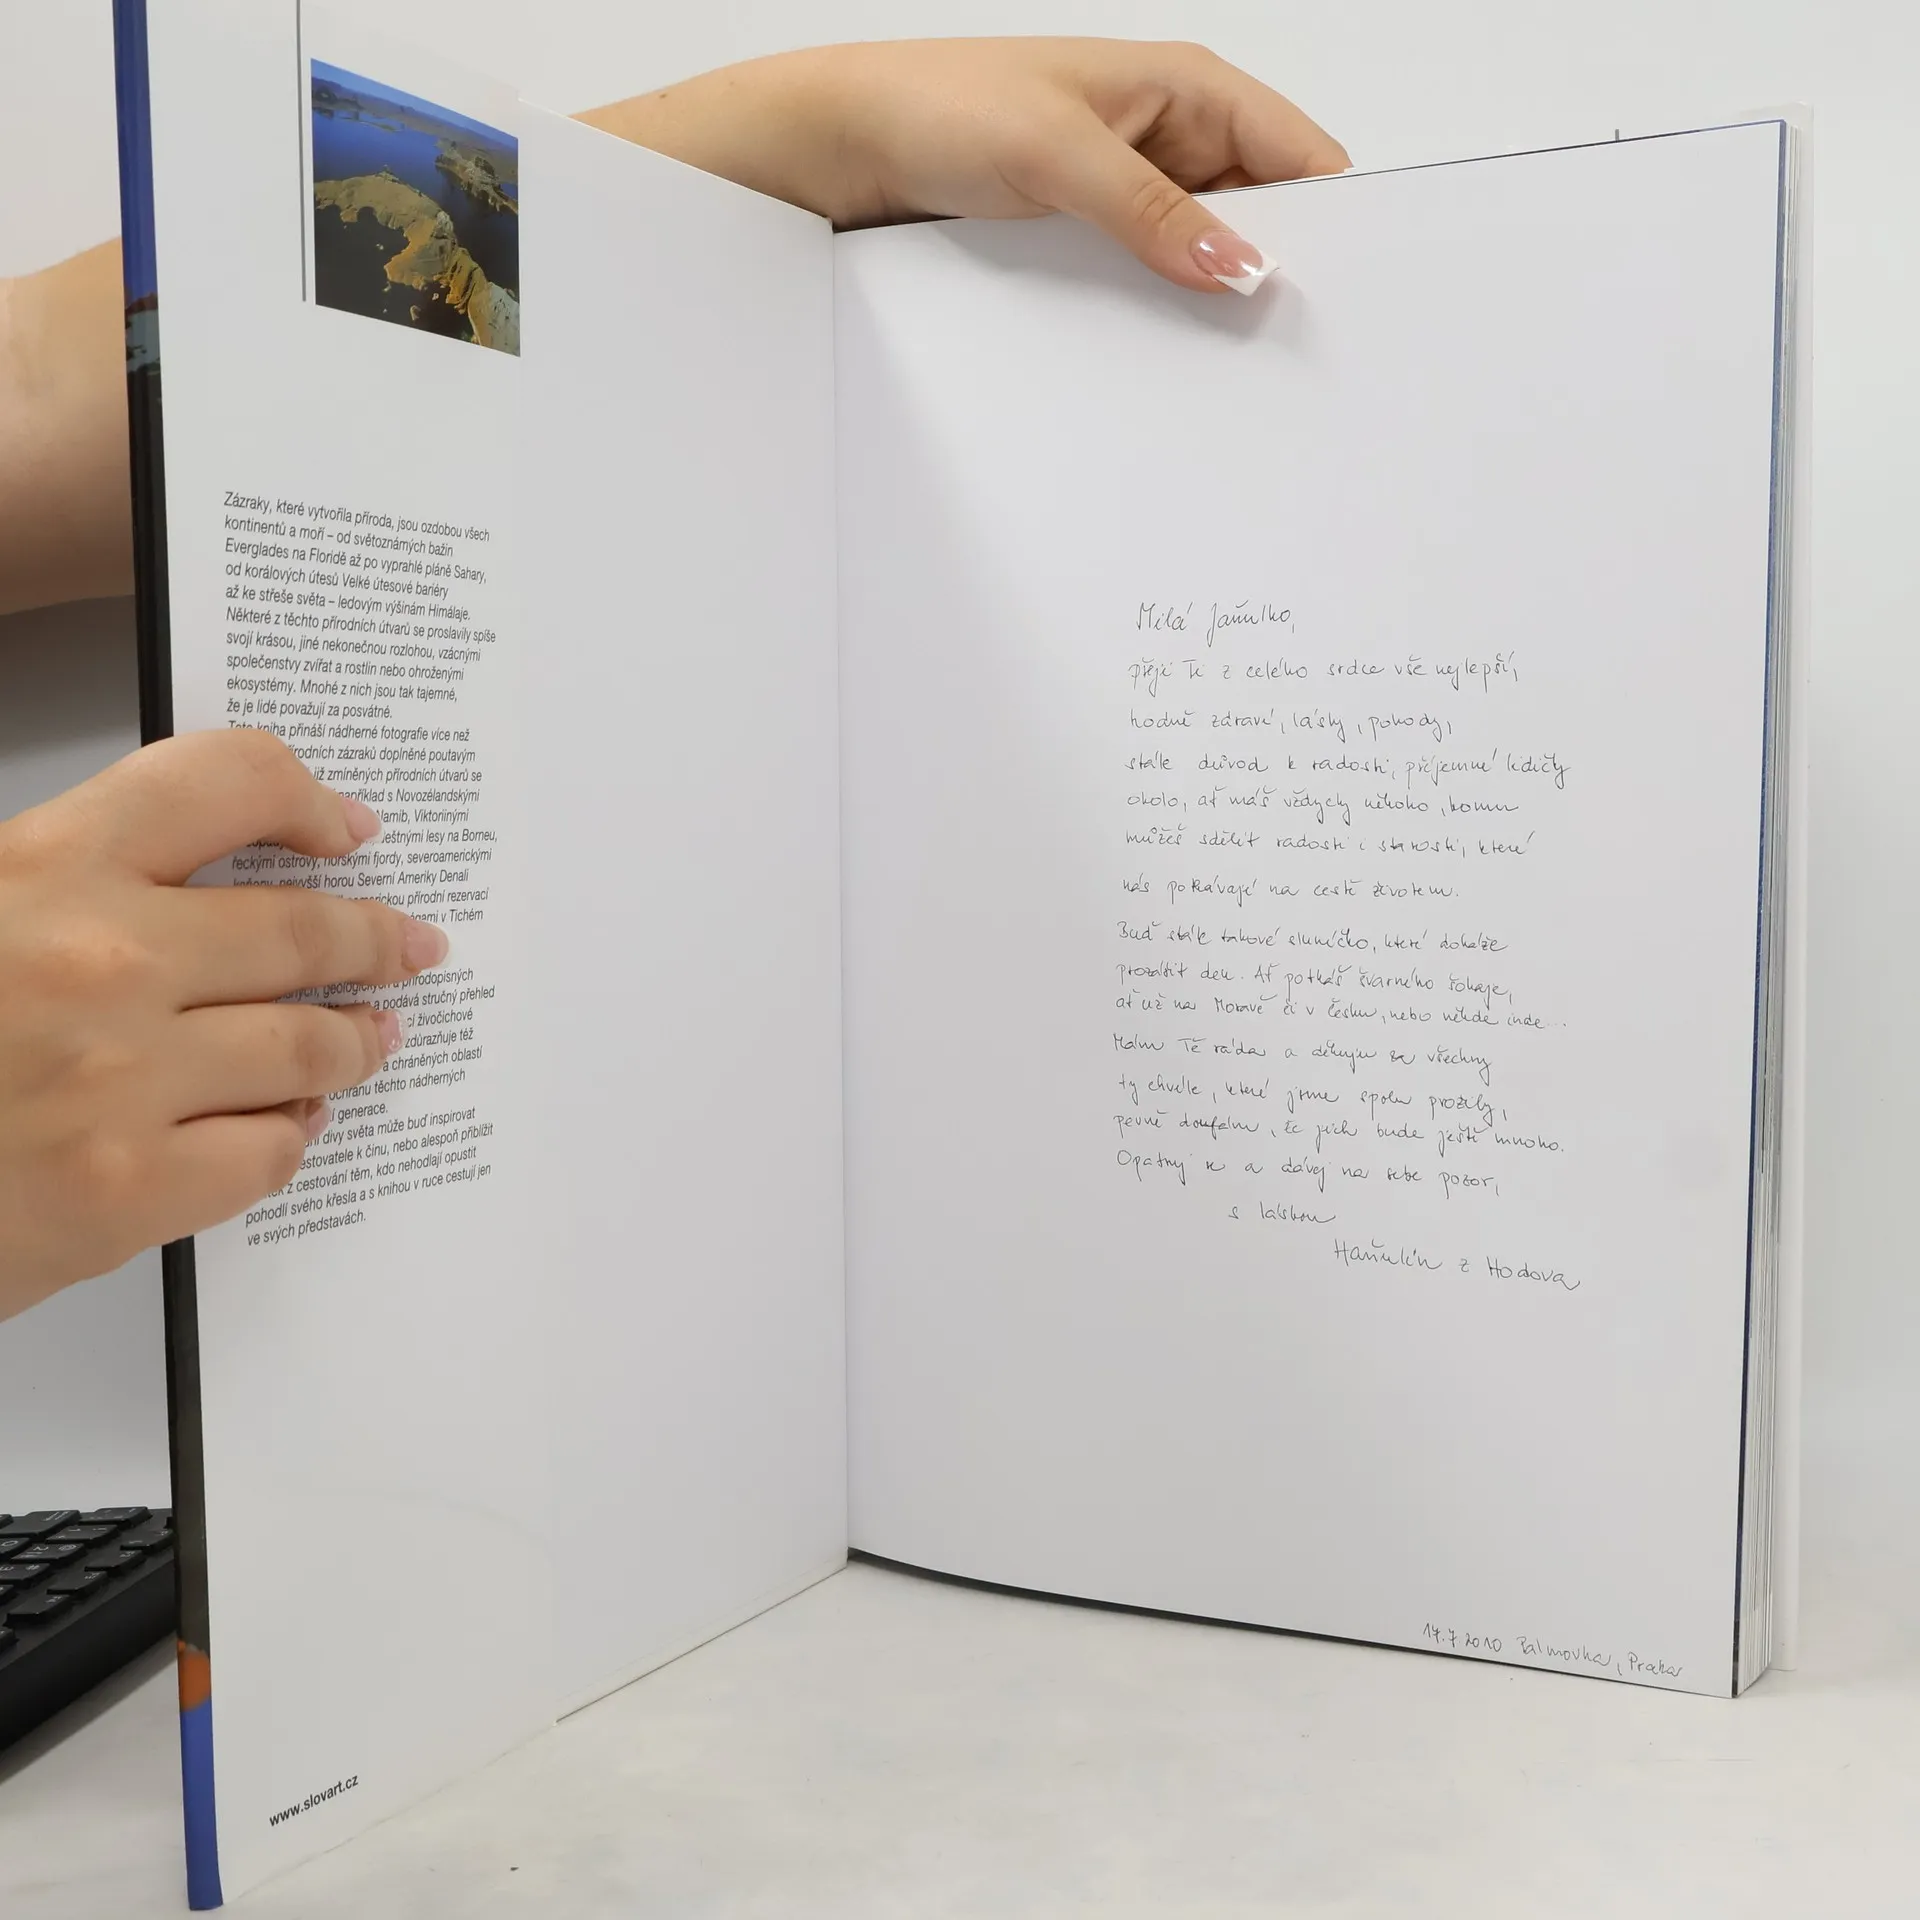 Zázraky, které vytvořila příroda, jsou ozdobou všech
kontinentů a moří – od světoznámých bažin
Everglades na Floridě až po vyprahlé pláně Sahary,
od korálových útesů Velké útesové bariéry
až ke střeše světa – ledovým výšinám Himálaje.
Některé z těchto přírodních útvarů se proslavily spíše
svojí krásou, jiné nekonečnou rozlohou, vzácnými
společenstvy zvířat a rostlin nebo ohroženými
ekosystémy. Mnohé z nich jsou tak tajemné,
že je lidé považují za posvátné.
Tato kniha přináší nádherné fotografie více než
zázraků doplněné poutavým
již zmíněných přírodních útvarů se
například s Novozélandskými
Namib, Viktoriinými
lesy na Borneu,
řeckými ostrovy, norskými fjordy, severoamerickými
kaňony, nejvyšší horou Severní Ameriky Denali
přírodní rezervací
v Tichém
přírodopisných
a podává stručný přehled
živočichové
zdůrazňuje též
a chráněných oblastí
ochranu těchto nádherných
generace.
divy světa může buď inspirovat
k činu, nebo alespoň přiblížit
z cestování těm, kdo nehodlají opustit
pohodlí svého křesla a s knihou v ruce cestují jen
ve svých představách.
www.slovart.cz
Milá Jaňulko,
přeji Ti z celého srdce vše nejlepší,
hodně zdraví, lásky, pohody,
stále důvod k radosti, příjemné lidičky
okolo, ať máš vždycky někoho, komu
můžeš sdělit radosti i starosti, které
nás potkávají na cestě životem.
Buď stále takové sluníčko, které dokáže
prozářit den. Ať potkáš švarného šohaje,
ať už na Moravě či v Česku, nebo někde inde...
Mám Tě ráda a děkuju za všechny
ty chvíle, které jsme spolu prožily,
pevně doufám, že jich bude ještě mnoho.
Opatruj se a dávej na sebe pozor,
s láskou
Haňulín z Hodova
17.7.2010 Palmovka, Praha